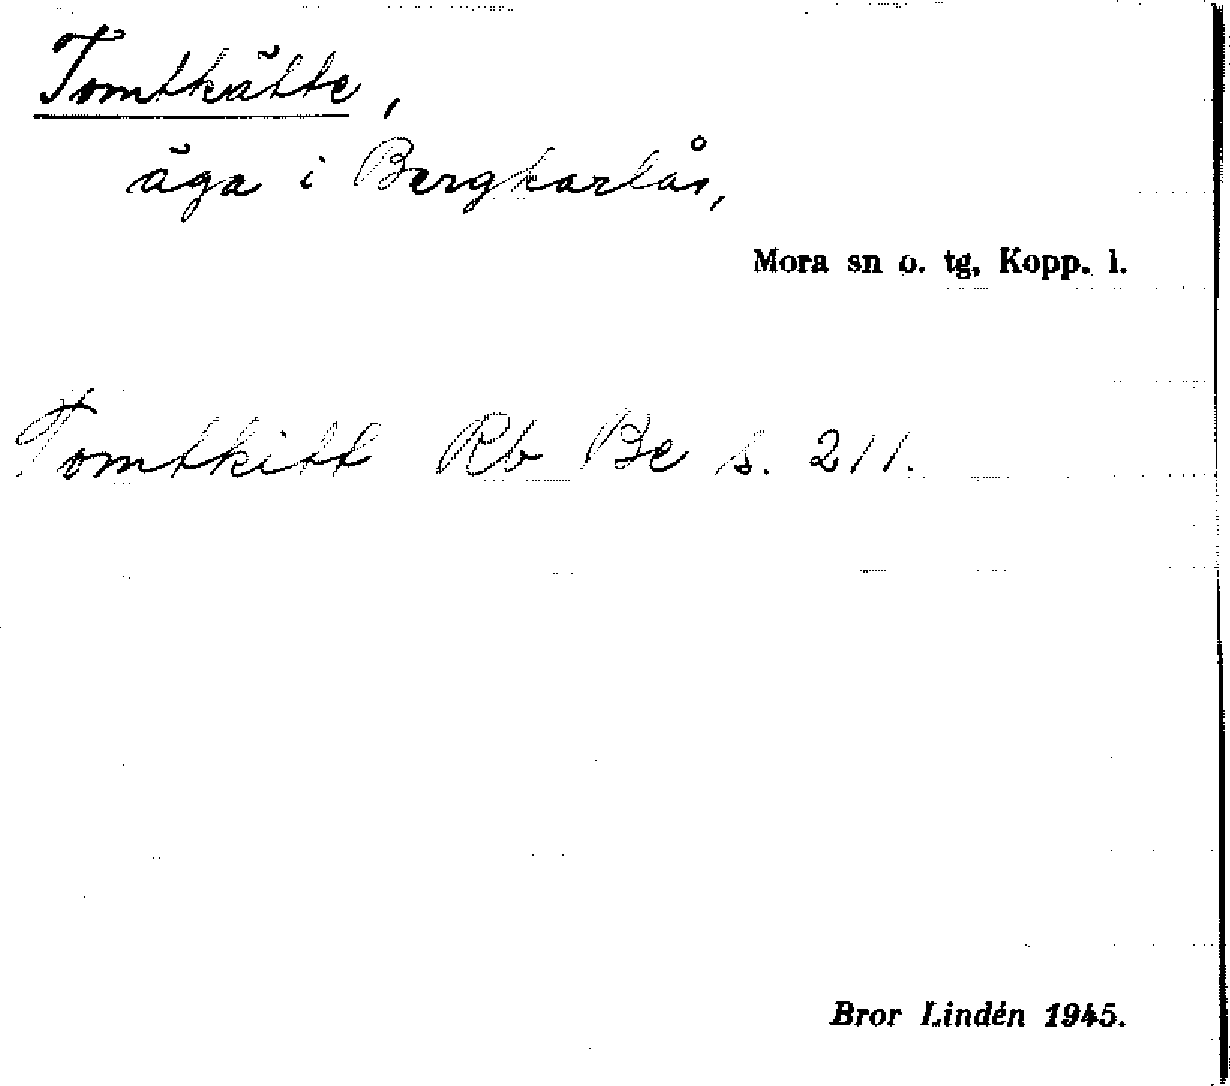 Tomtkätte,
äga i Bergkarlås,
Mora sn o. tg, Kopp. l.
Tomtkitt Rb Be s. 211.
Bror Lindén 1945.